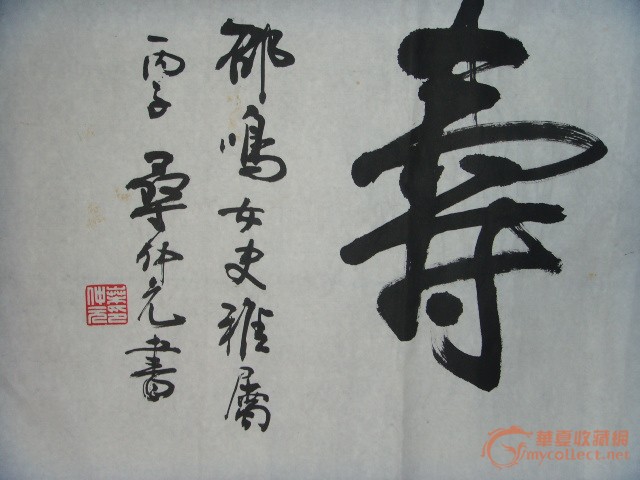 壽
邵鳴女史雅屬
丙子 仲元書
仲元
華夏收藏網
mycollect.net